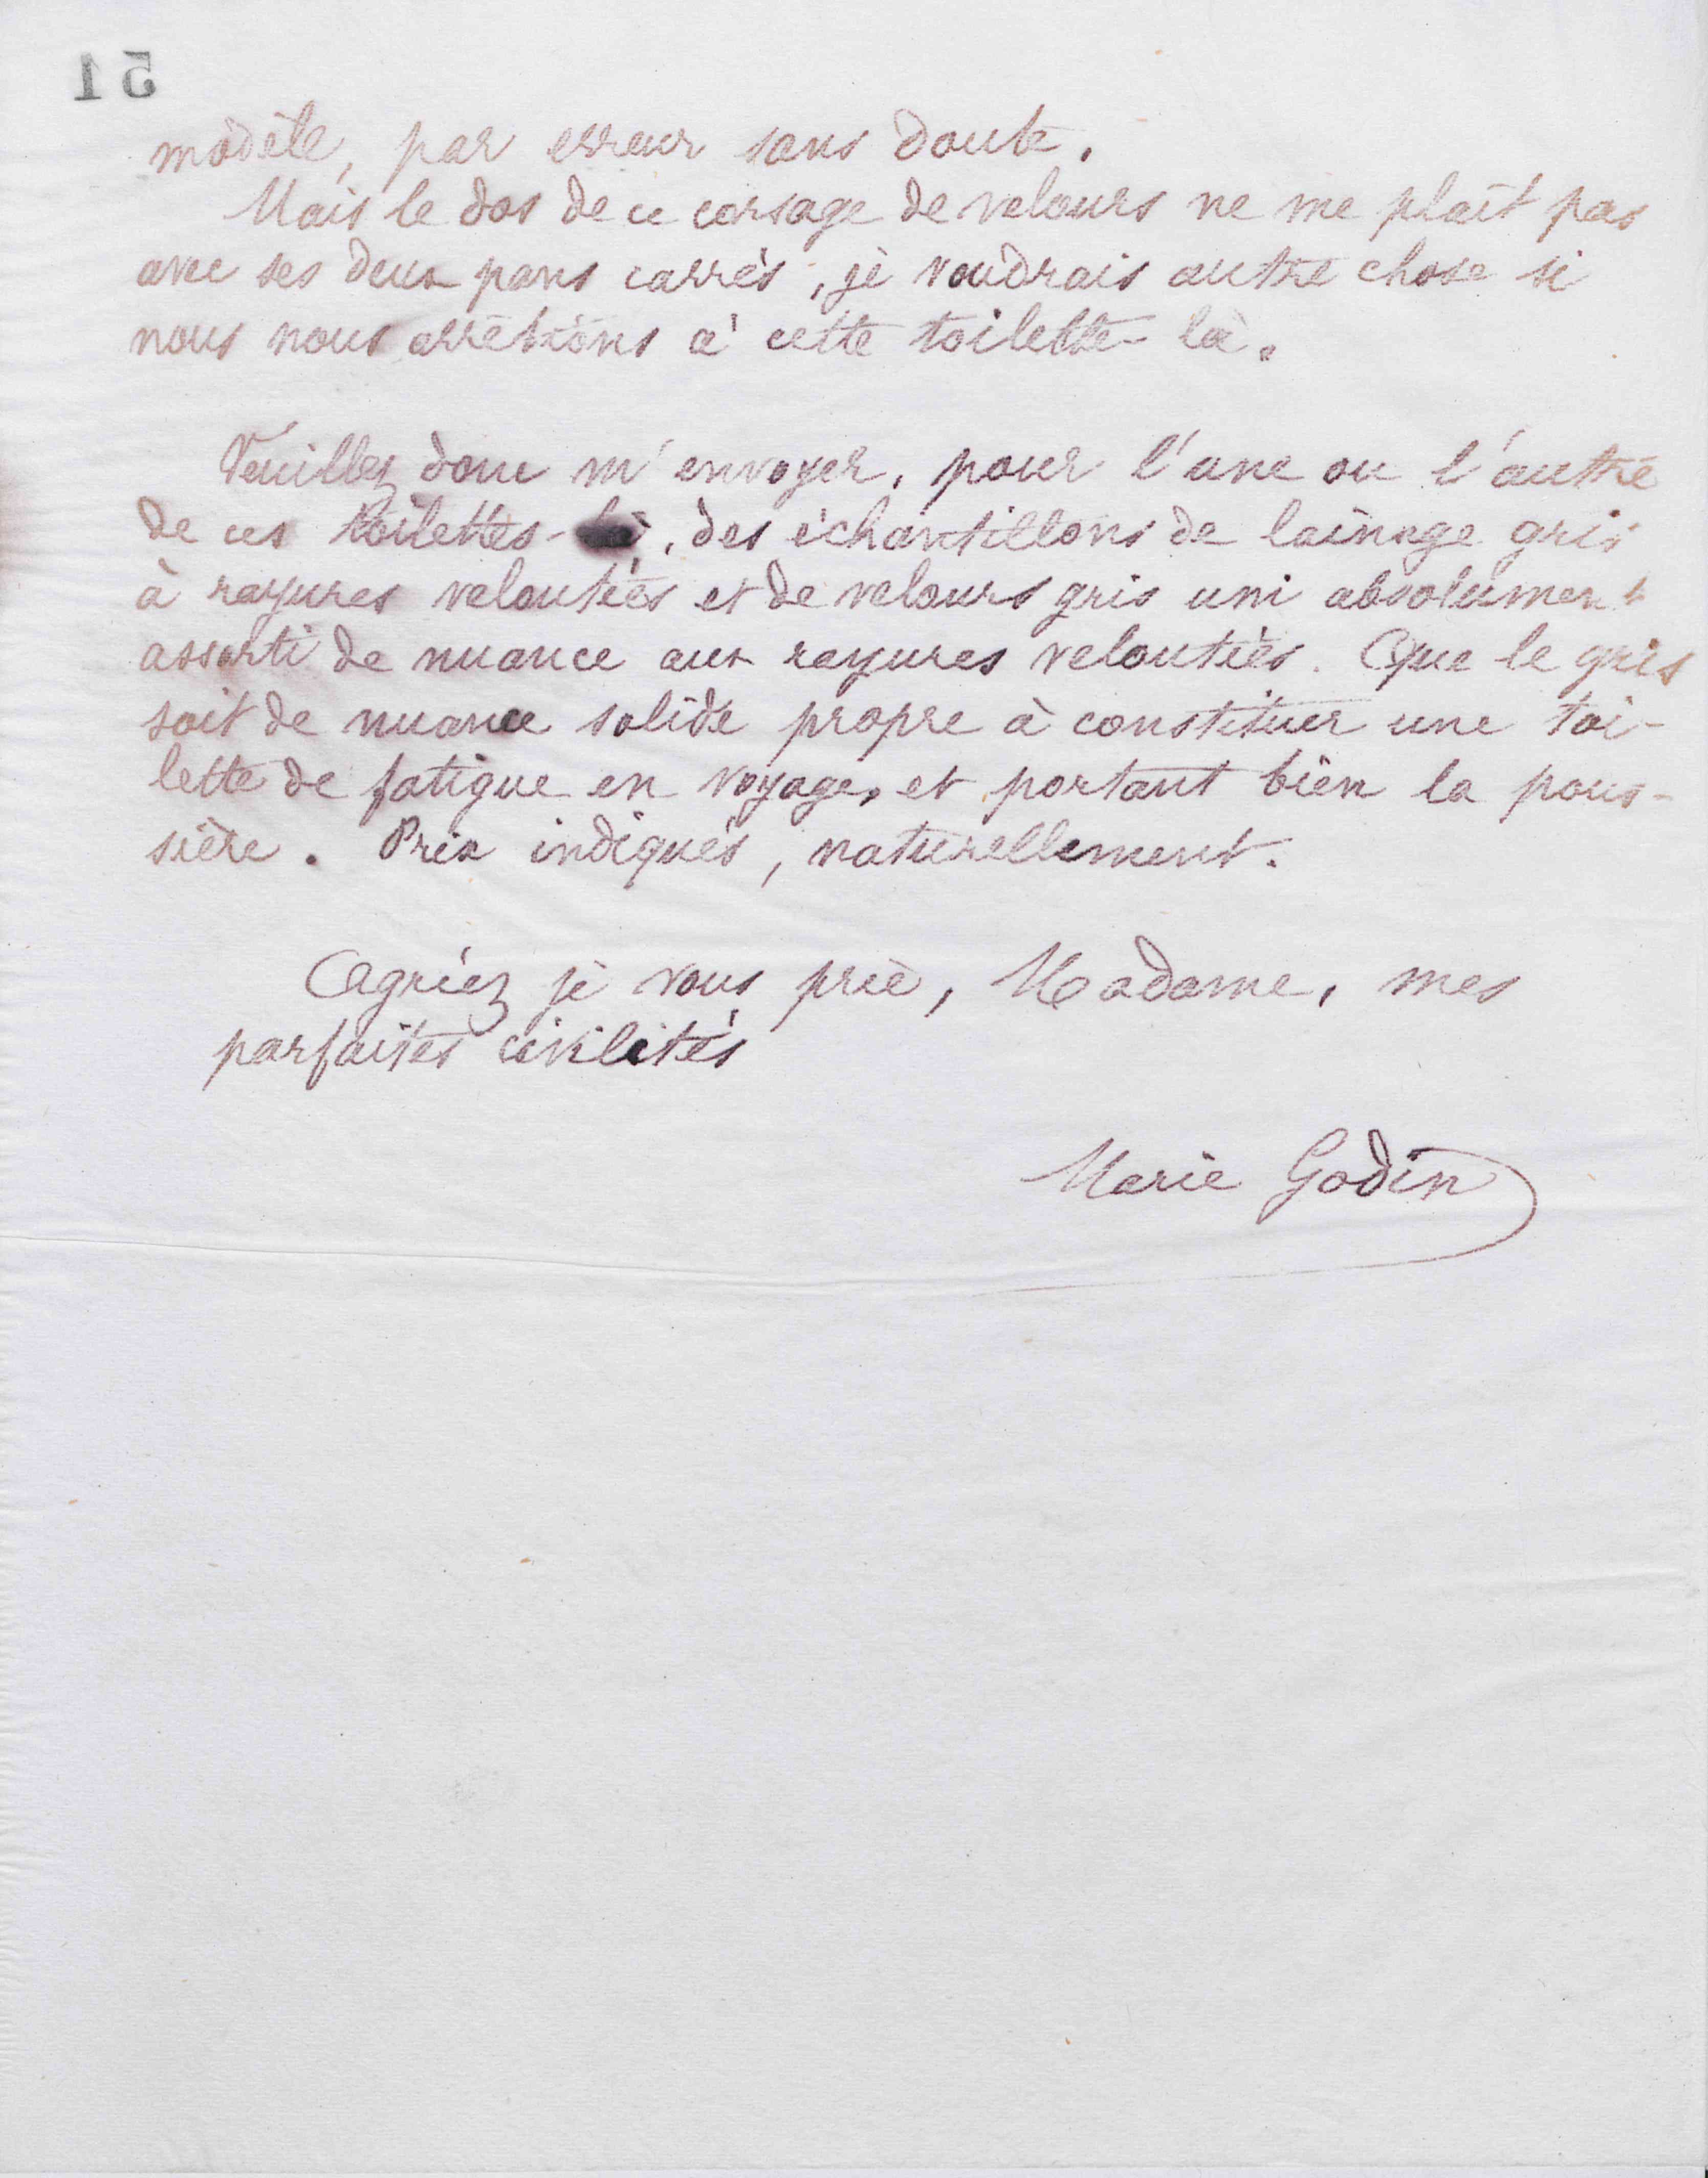 51
modèle, par erreur sans doute.
Mais le dos de ce corsage de velours ne me plaît pas
avec ses deux pans carrés, je voudrais autre chose si
nous nous arrêtions à cette toilette-là.
Veuillez donc m'envoyer, pour l'une ou l'autre
de ces toilettes-là, des échantillons de lainage gris
à rayures veloutées et de velours gris uni absolument
assorti de nuance aux rayures veloutées. Que le gris
soit de nuance solide propre à constituer une toi-
lette de fatigue en voyage, et portant bien la pous-
sière. Prix indiqués, naturellement.
Agréez je vous prie, Madame, mes
parfaites civilités
Marie Godin